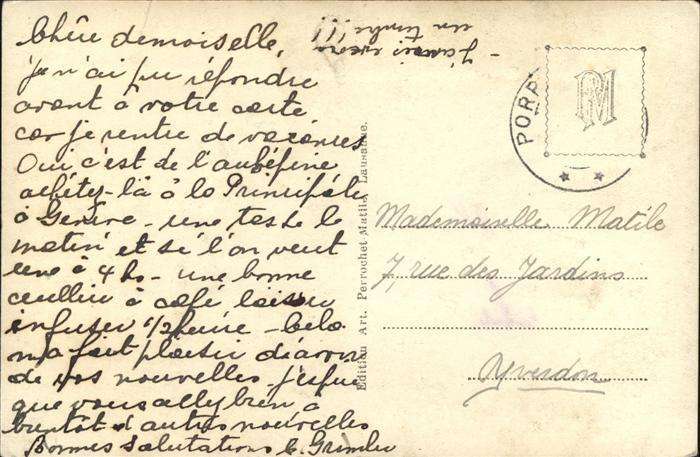 Chère demoiselle,
je n'ai pu répondre
avant à votre carte
car je rentre de vacances
Oui c'est de l'aubépine
achetez-là à la Principale
à Genève - une tasse le
matin et si l'on veut
une à 4 h. - une bonne
cuillère à café laisser
infuser 1/2 heure - cela
m'a fait plaisir d'avoir
de vos nouvelles j'espère
que vous allez bien, à
bientôt d'autres nouvelles
Bonnes salutations
- J'avais encore
un timbre !!!
Edition Art. Perrochet Matile, Lausanne.
PM
PORR
Mademoiselle Matile
7, rue des Jardins
Yverdon